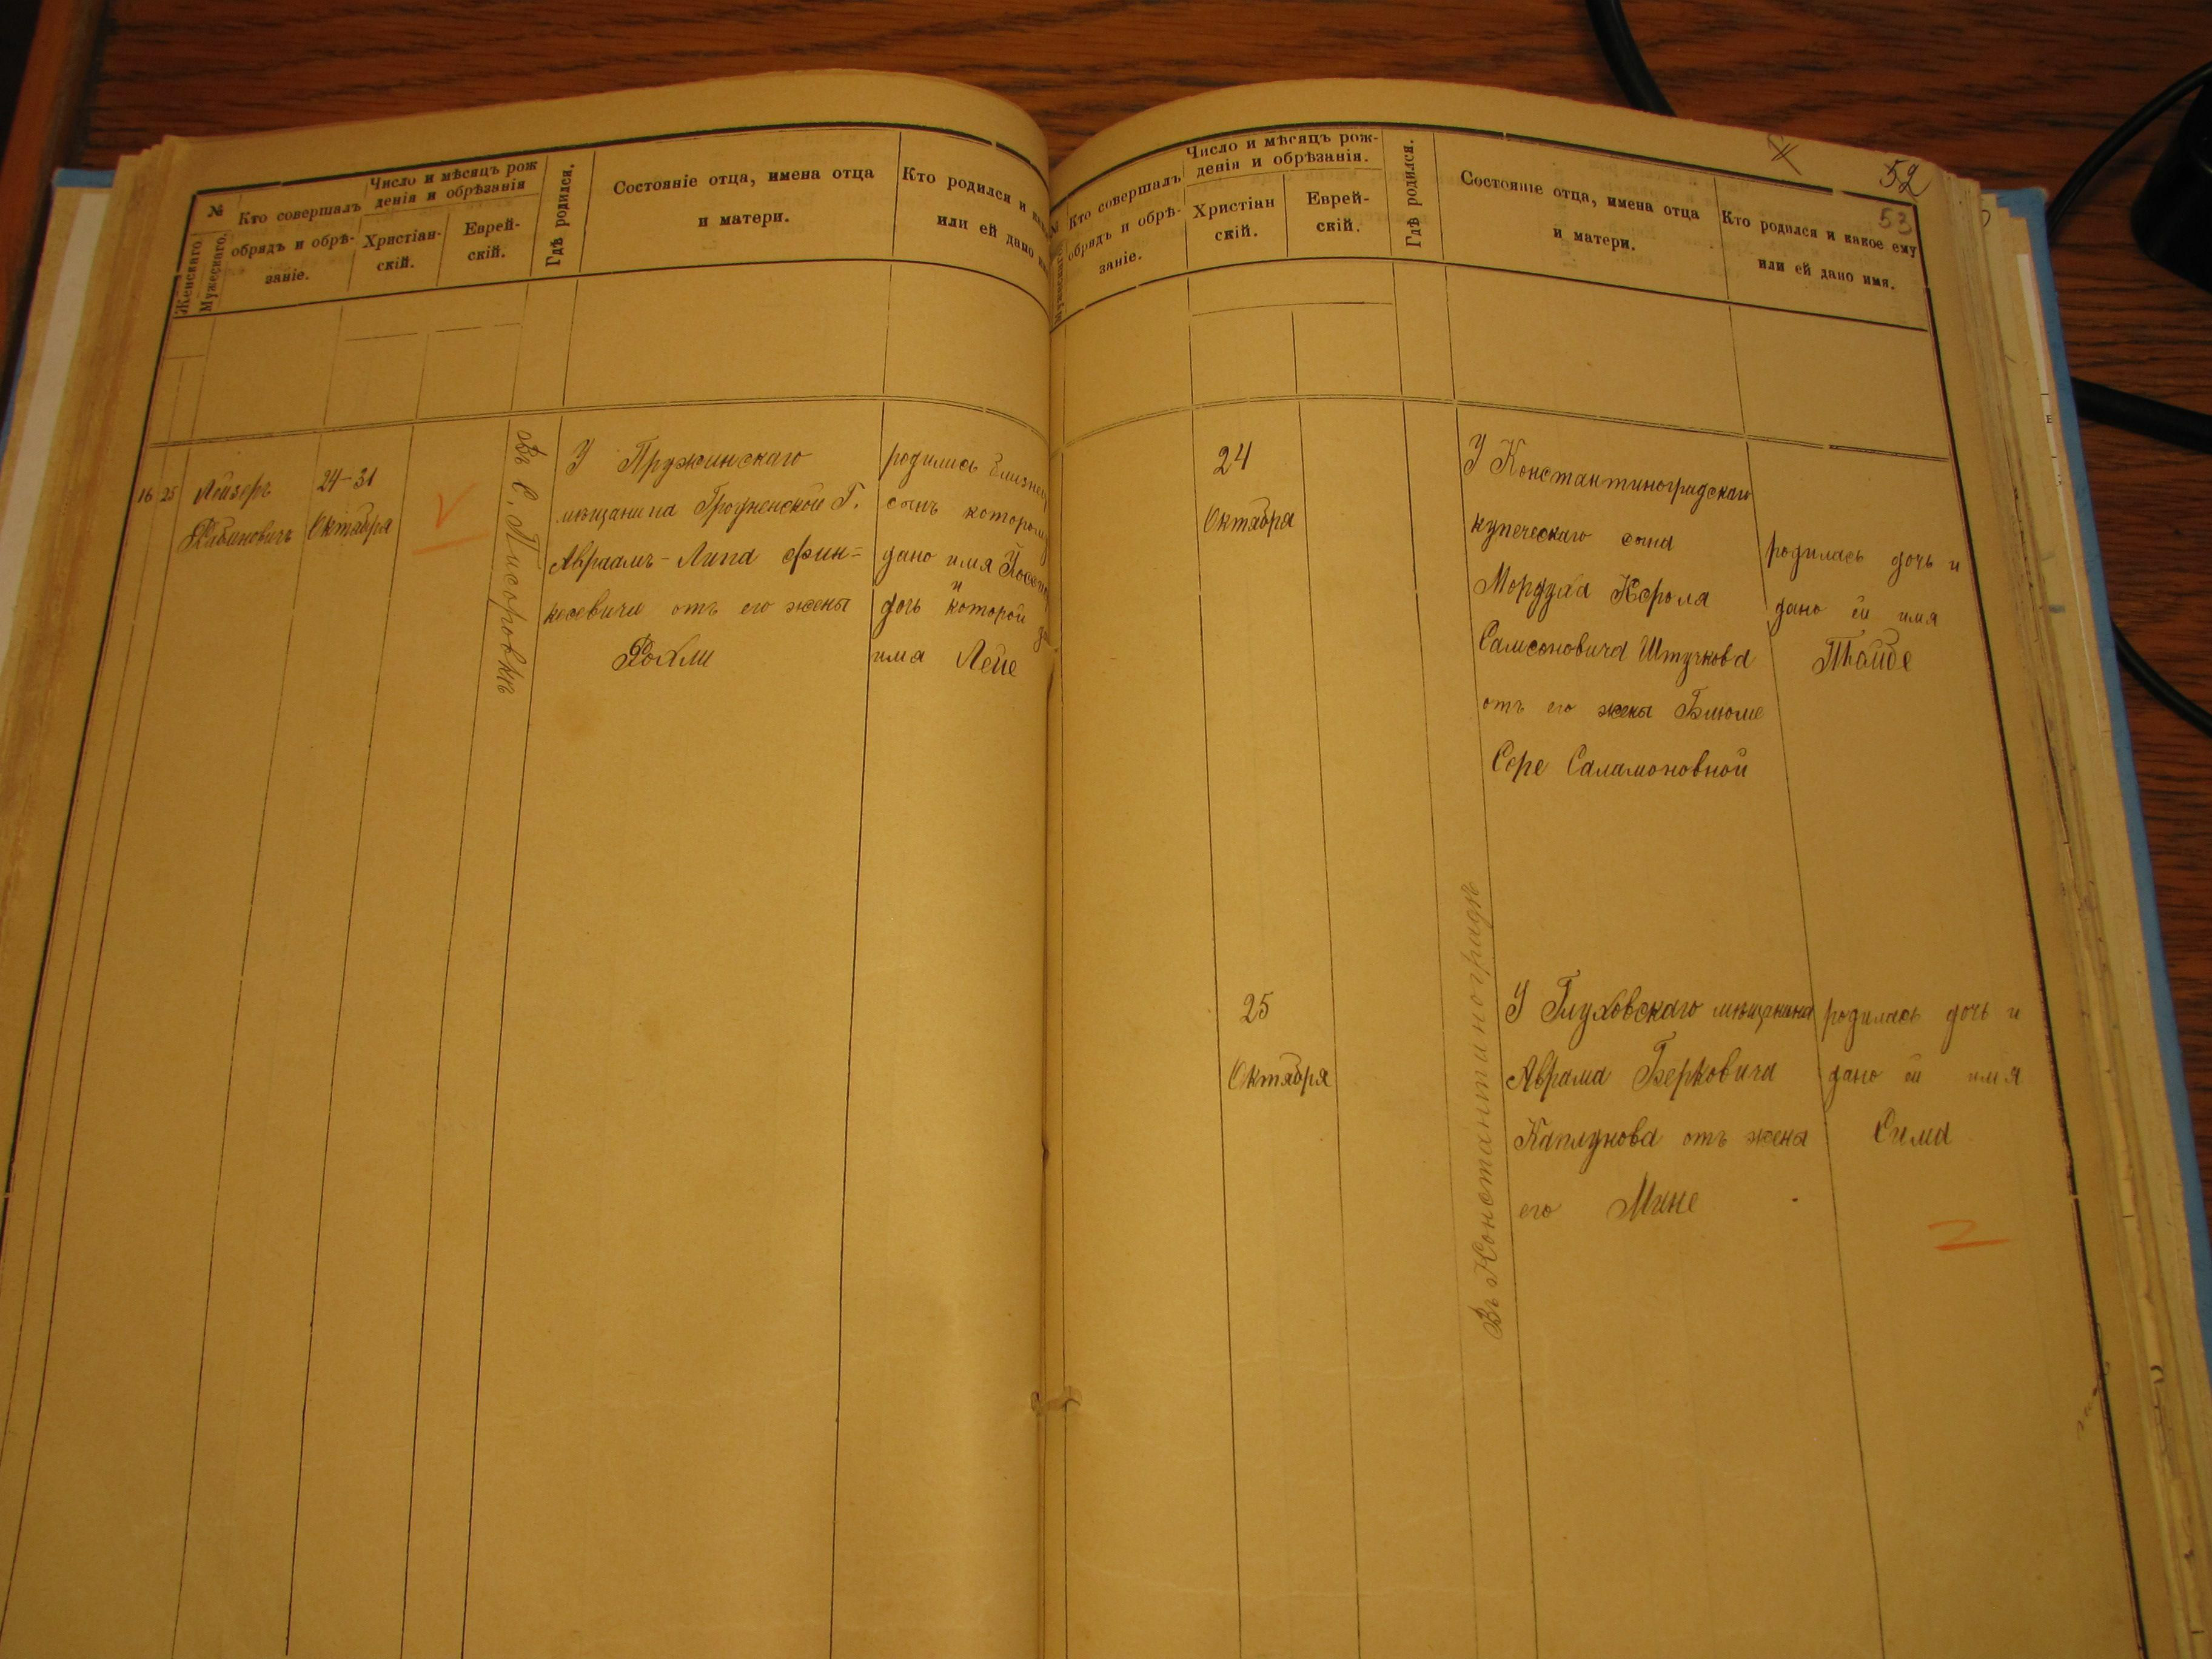 №
Женскаго.
Мужескаго.
Кто совершалъ
обрядъ и обрѣ-
заніе.
Число и мѣсяцъ рож
денія и обрѣзанія
Христіан-
скій.
Еврей-
скій.
Гдѣ родился.
Состояніе отца, имена отца
и матери.
Кто родился и
или ей дано
16 25
Лейзеръ
Рабиновичъ
24-31
Октября
Въ С.
У Пружинскаго
мѣщанина Гродненской Г.
Авраамъ-Липа Фин=
кевича отъ его жены
Рохли
родились близнец
сынъ котором
дано имя
и
дочь которой
имя Лейе
Мужескаго
Кто совершалъ
обрядъ и обрѣ-
заніе.
Число и мѣсяцъ рож-
денія и обрѣзанія.
Христіан
скій.
Еврей-
скій.
Гдѣ родился.
Состояніе отца, имена отца
и матери.
Кто родился и какое ему
или ей дано имя.
52
53
24
Октября
У Константиноградскаго
купеческаго сына
Мордуха
Самсоновича Штучкова
отъ его жены Блюме
Сере Саламоновной
родилась дочь и
дано ей имя
Въ Константиноградѣ
25
Октября
У Глуховскаго мѣщанина
Аврама Берковича
Каплунова отъ жены
его Мине
родилась дочь и
дано ей имя
Сима